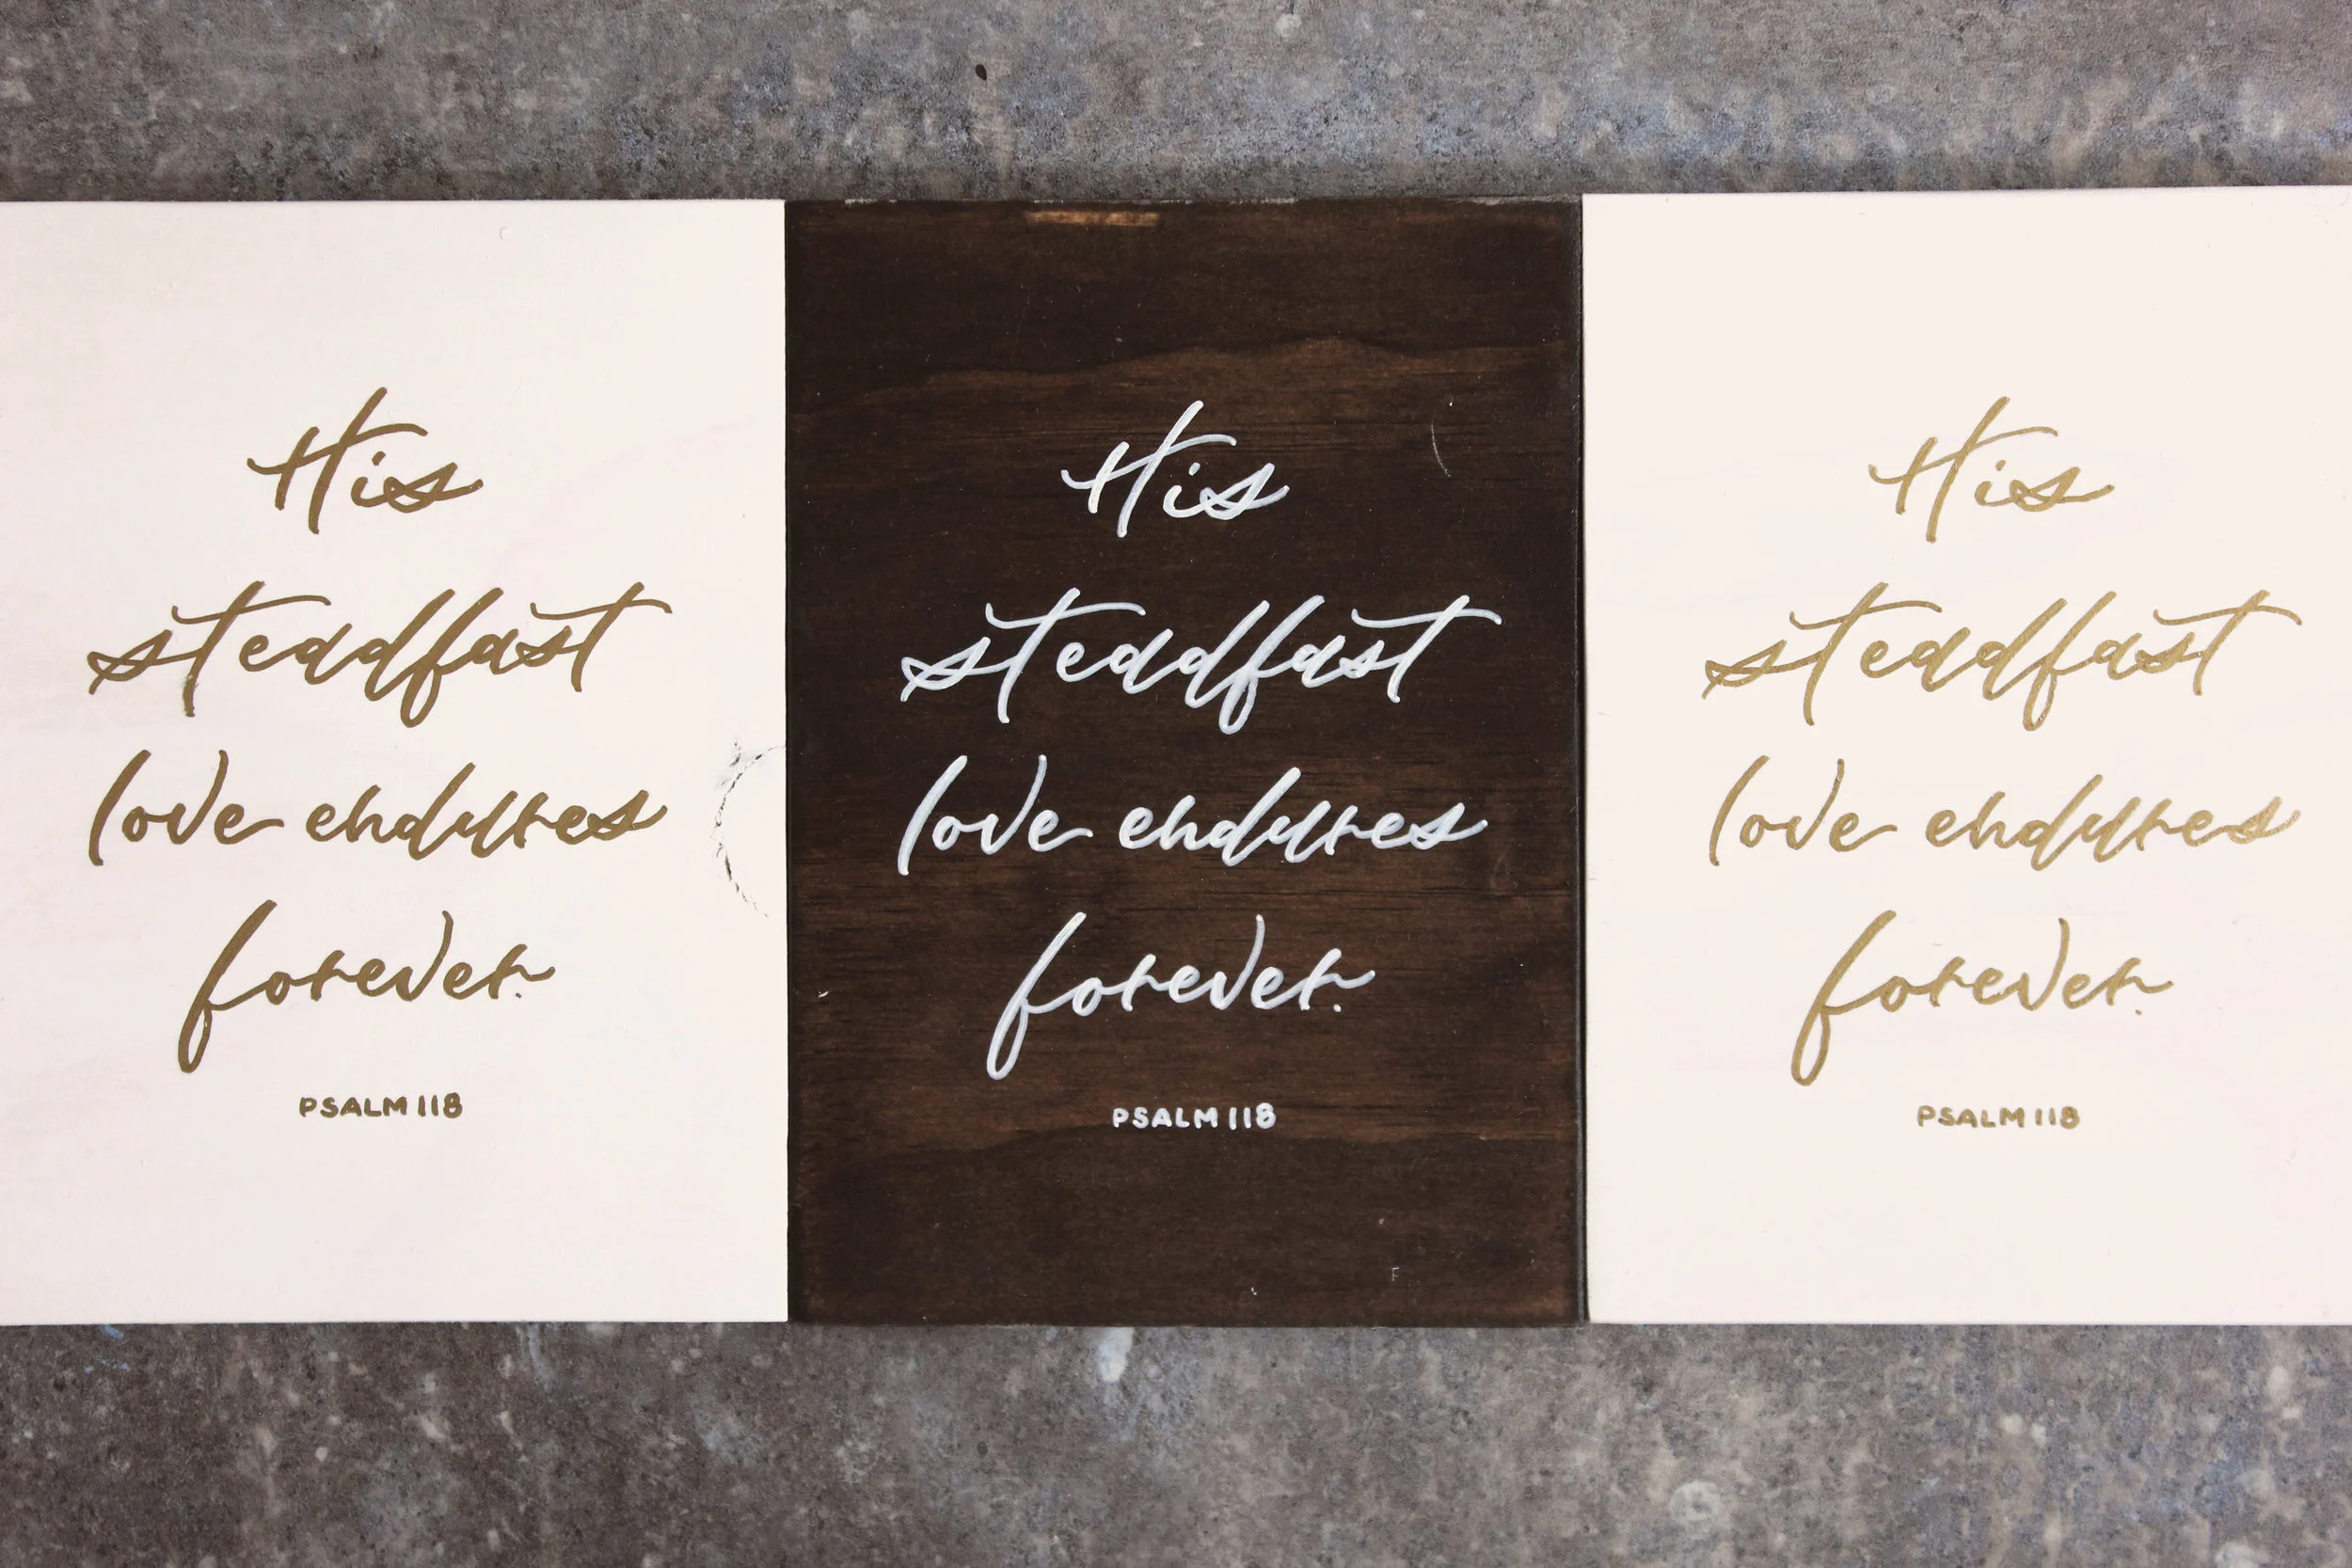 His
steadfast
love endures
forever.
PSALM 118
His
steadfast
love endures
forever.
PSALM 118
His
steadfast
love endures
forever.
PSALM 118